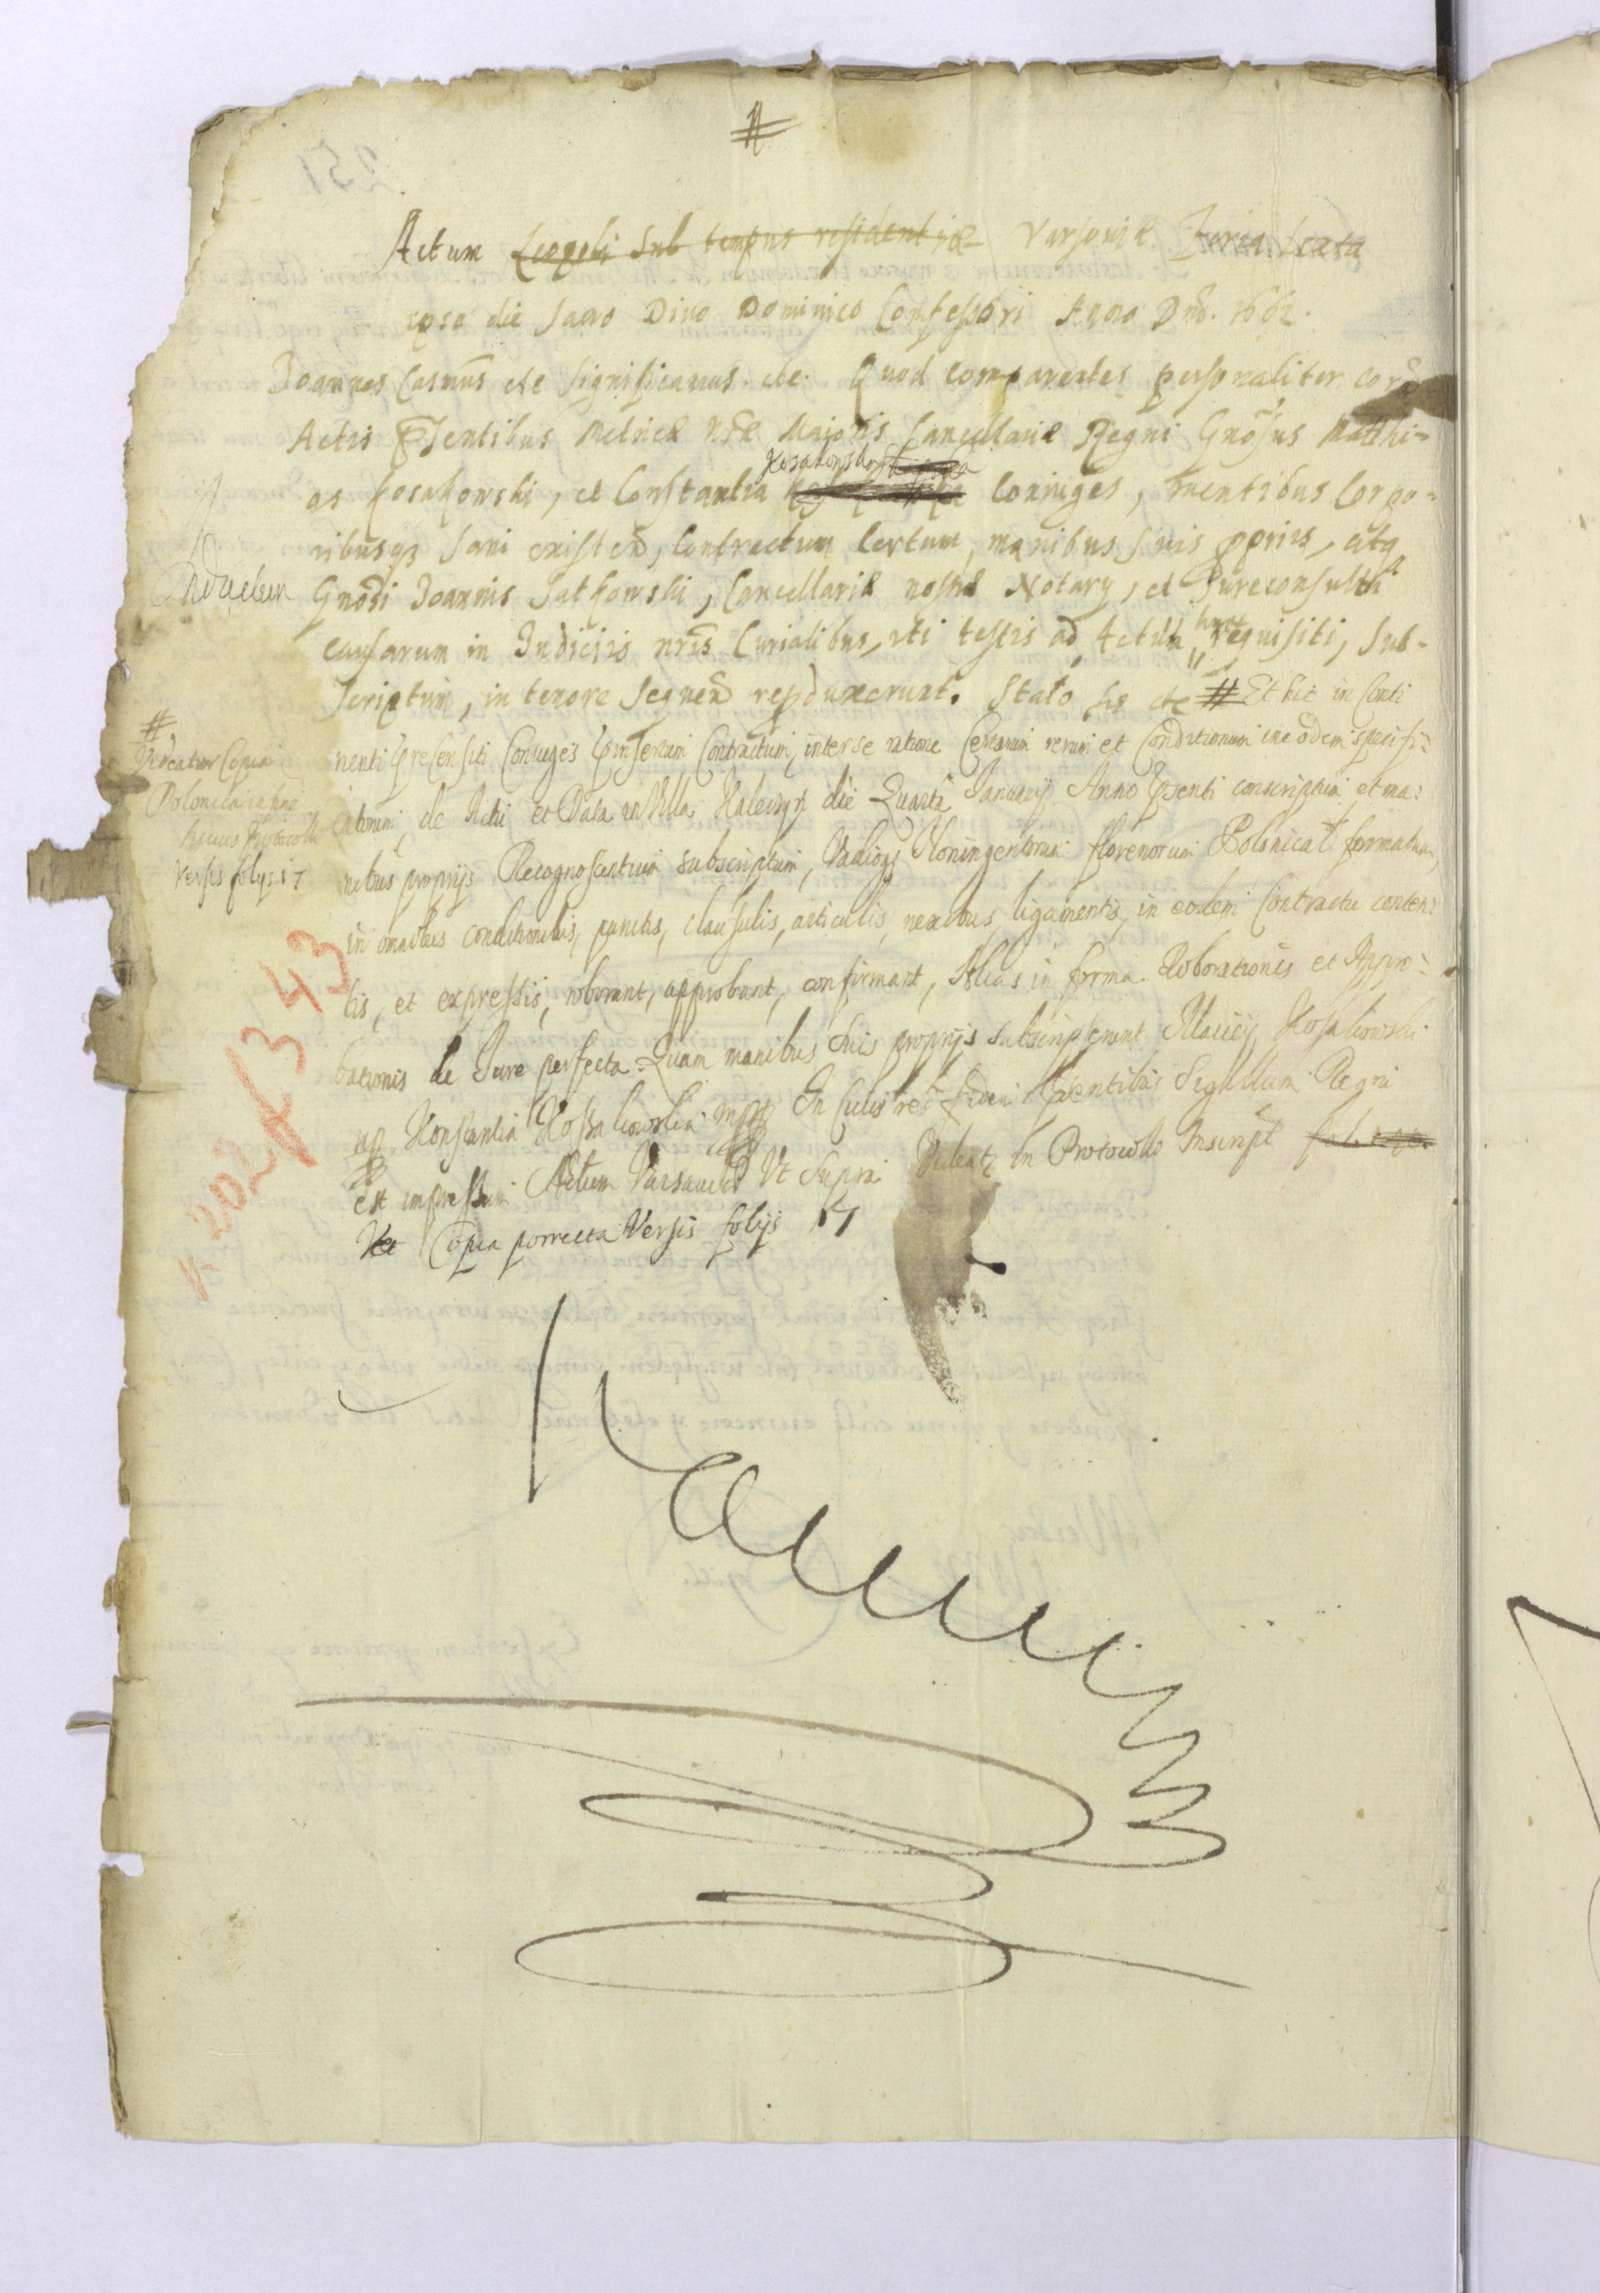 #
251
Actum Leopoli Sub tempus residentiæ Varsoviæ Feria Sexta
ipso die Sacro Divo Dominico Confessori Anno Dnī. 1662.
Joannes Casmūs etc Significamus. etc. Quod comparentes personaliter corā
Actis Pṡentibus Metricæ Nrǣ Majoris Cancellariæ Regni Gnōsus Matthi=
as Kosakowski, et Constantia Kosakowska Coniuges, mentibus Corpo=
ribusqȝ Sani existeñ, Contractum Certum, manibus suis ppriis, atq
Gnōsi Joannis Jatkowski, Cancellariæ nostræ Notary, et Jureconsulti
causarum in Judiciis nrīs Curialibus, uti testis ad Actum hunc requisiti, Sub=
scriptum, in tenore Sequeñ repduxerunt. Stato etc # Et hic in Conti
nenti præsensiti Coniuges Insertum Contractum, inter se ratione Certarum rerum et Conditionum in eodem specifi=
catorum, de Actu et Data in Villa Haleczyn die Quarta January Anno Pṡenti conscriptum et ma=
nibus proprijs Recognoscentium subscriptum, Vadioqȝ Noningentorum florenorum Polonical. formatum,
in omnibus conditionibus, punctis, clausulis, articulis, nexibus, ligamentis, in eodem Contractu conten=
tis, et expressis, roborant, approbant, confirmant, Alias in forma Roborationis et Appro=
bationis de Jure perfecta. Quam manibus Suis proprijs subscripserunt Maciej Kosakowski
mp Konstantia Kossakowska mp In Cuius rei fidem Pṡentibus Sigillum Regni
est impressum Actum Varsaviæ Ut Supra Videatr in Protocollo Inscript
Copia porrecta Versis folijs 17
Inducatum
#
Videatur Copia
Polonica in fine
huius Protocolli
Versis folijs 17
k. 202 / 3 43